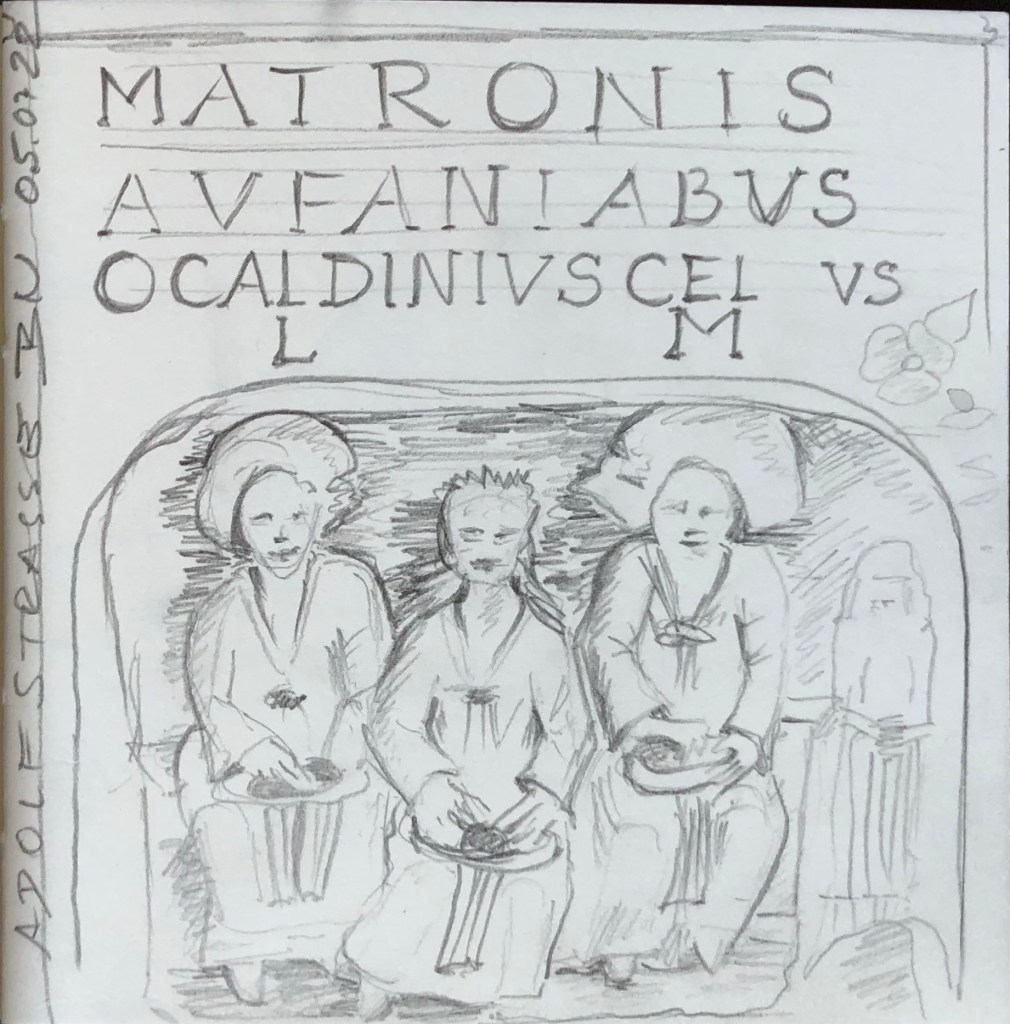 MATRONIS
AVFANIABVS
OCALDINIVS CEL VS
L M
ADOLFSTRASSE BN 05.07.22